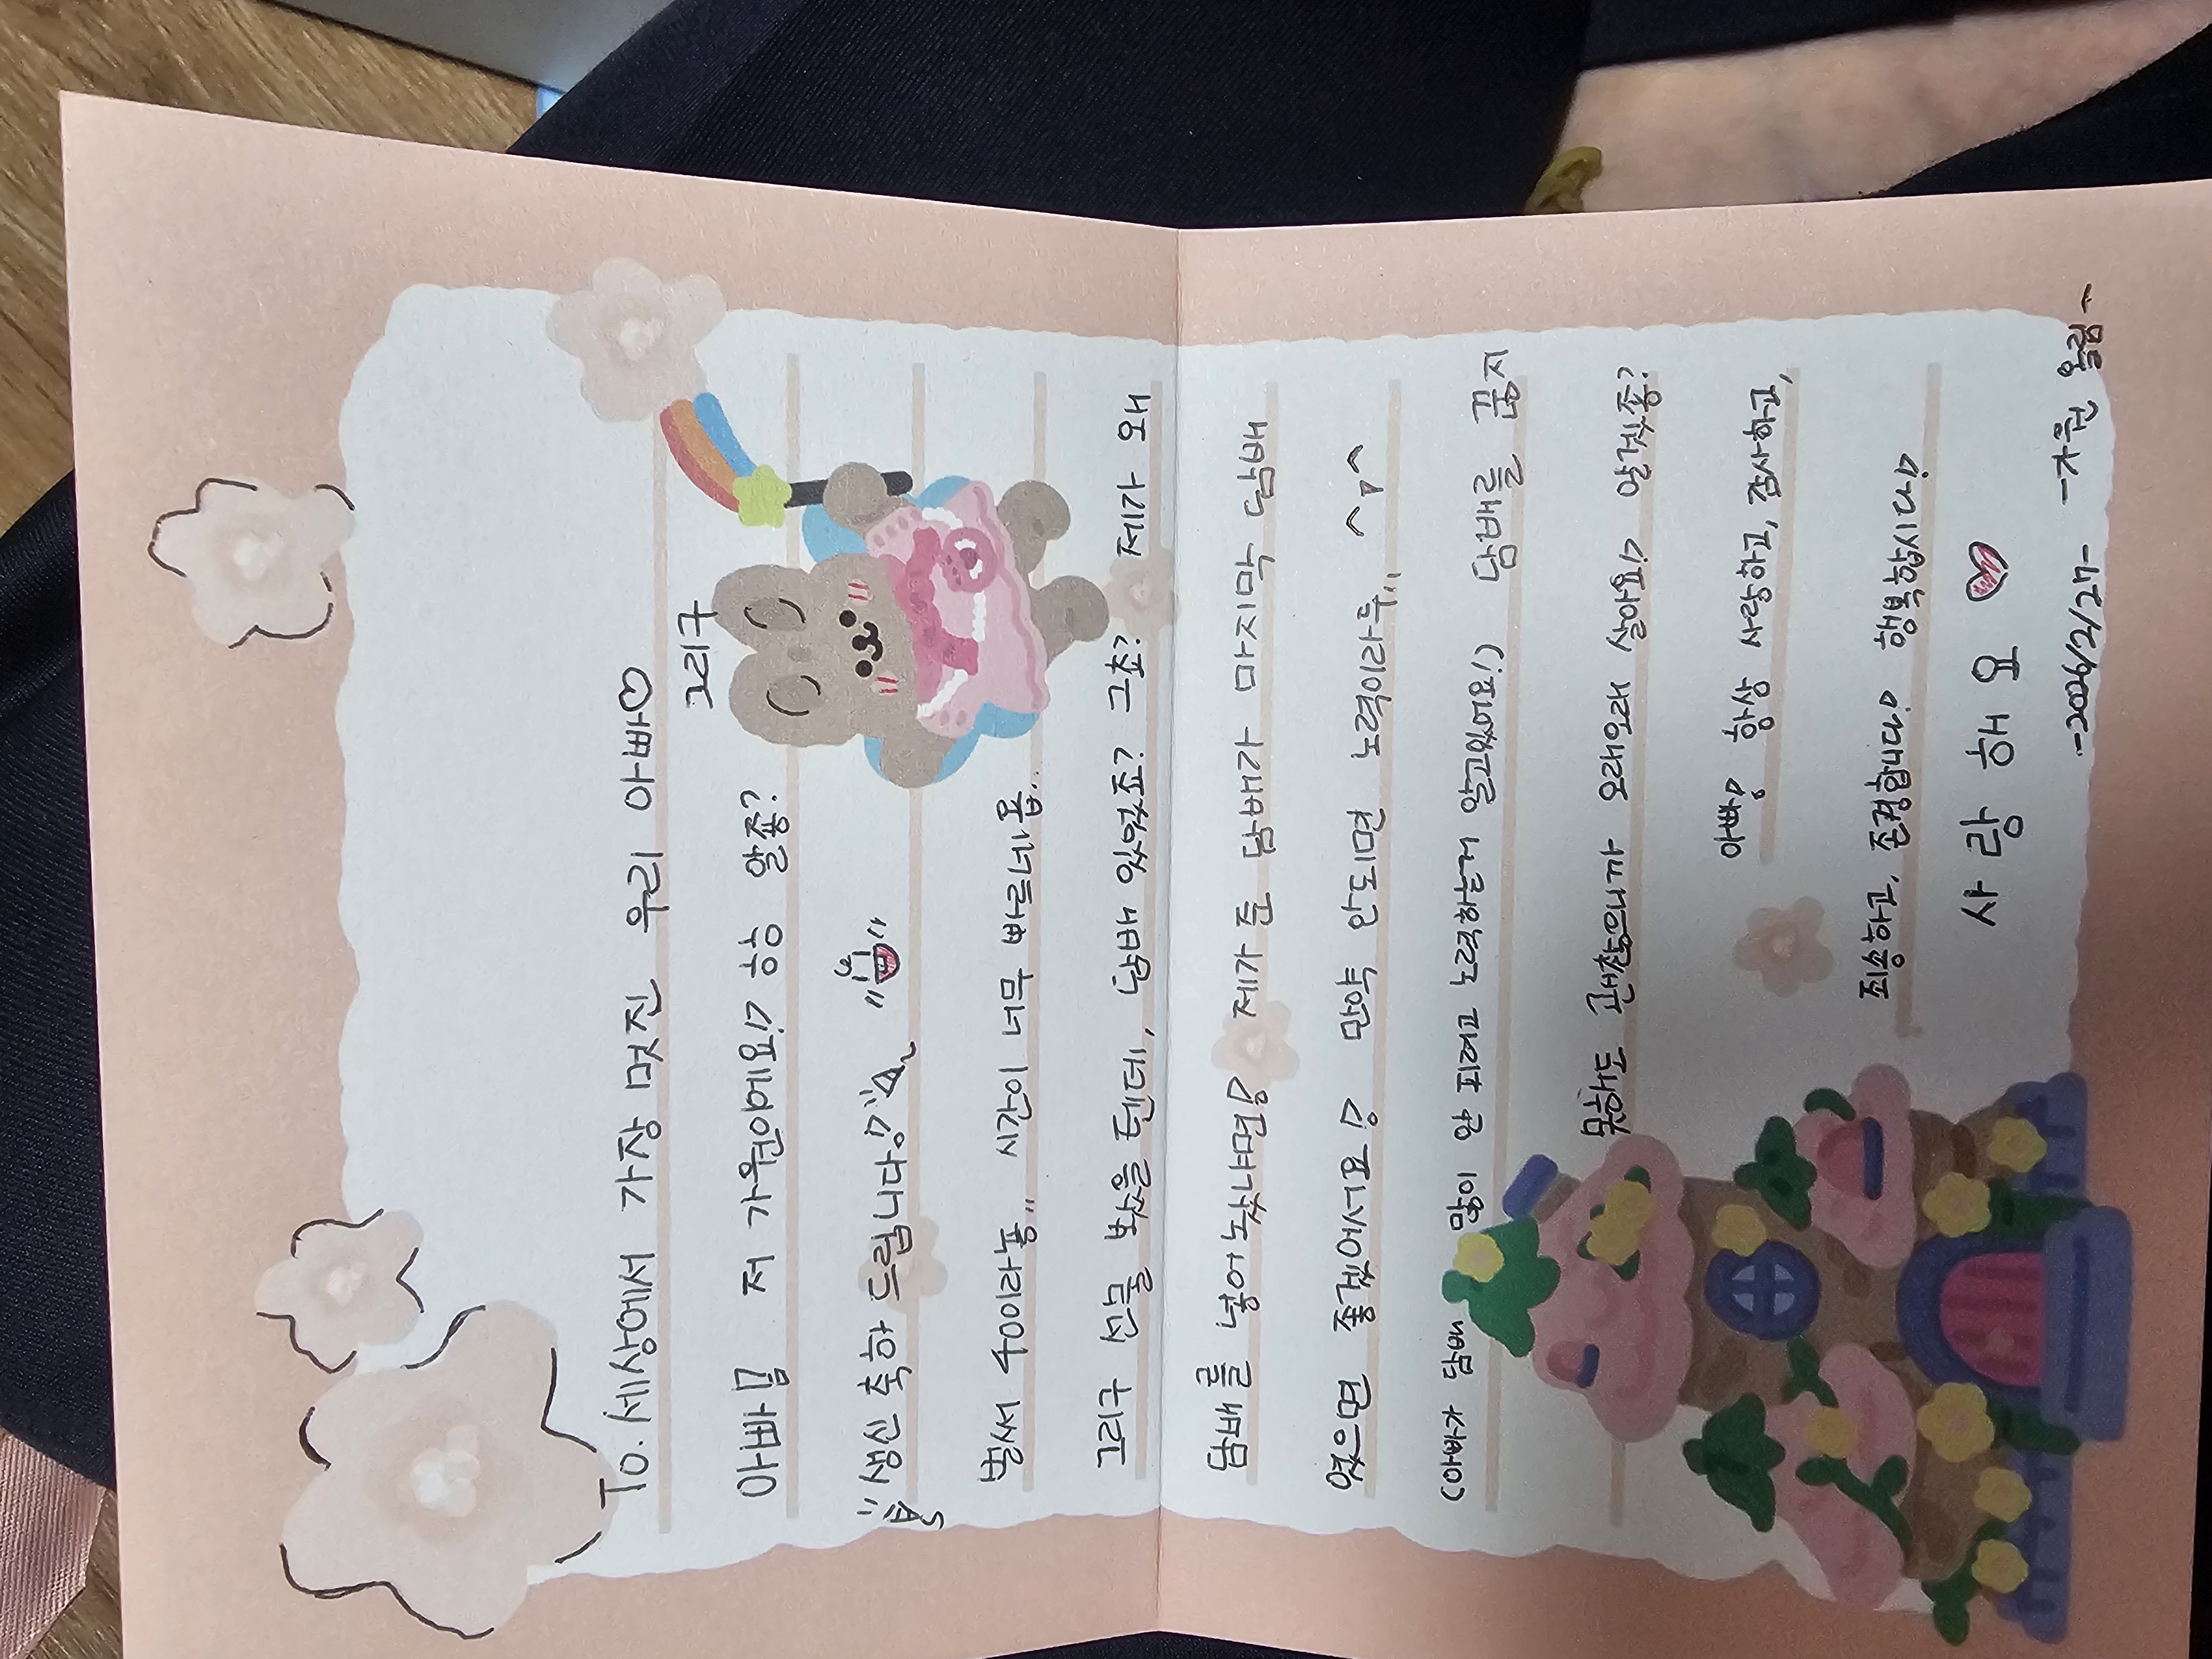 To. 세상에서 가장 멋진 우리 아빠♡
아빠!! 저 가원이에요!! 항상 알죵?
생신 축하 드립니다!!
그리구
벌써 40이라늉.. 시간이 너무 빠르네욥..
그리구 선물 봤을 텐데, 담배 있었죠? 그쵸? 제가 왜
담배를 넣어놨냐면!! 제가 준 담배가 마지막 담배
였으면 좋겠어서요!! 만약 안되면 노력이라두..
(아빠가 담배 많이 안 피려고 노력하는거 알고있어요!) 담배를 끊지
못해도 괜찮으니까 오래오래 살아요!! 알겠죵?
아빠!! 항상 사랑하고, 감사하고,
죄송하고, 존경합니다!! 행복합시다!!
사랑해요♡